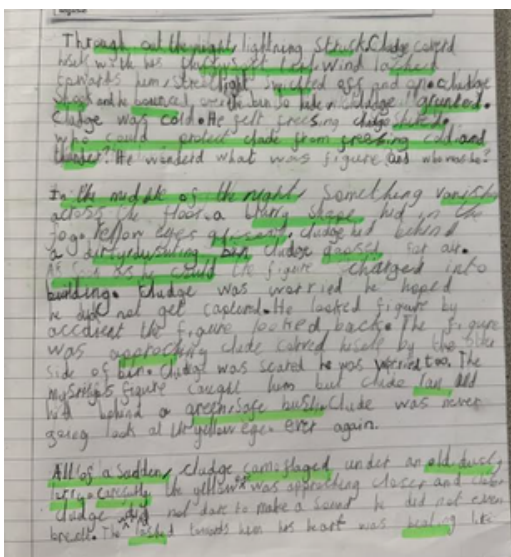 Through out the night, lightning struck. Cludge coverd
with his wind lashed
towards him, Streetlight, switched off and on. cludge
Shook and he bounced, over the bin to hide. cludge grunted.
Cludge was cold. He felt freesing cludge
who could protect clude from freesing cold and
thunder? He wonderd what was figure and who was he?
In the middle of the night, Something vanish
across the floor. a blurry shape, hid in the
fog. Yellow eyes cludge hid behind
a dirty bin cludge gasped for air.
As fast as he could the figure charged into
building. Cludge was worried he hoped
he did not get captured. He looked figure by
accdient the figure looked back. The figure
was approching clude coverd by the other
side of bin. Cludge was scared he was worried too. The
figure caught him but clude ran and
hid behind a green, safe bush. Clude was never
going look at the yellow eye. ever again.
All of a Sadden, cludge camoflaged under an old dusty
carefully the yellow was approching closer and closer
cludge did not dare to make a sound he did not even
breath. The looked towards him his heart was beating like